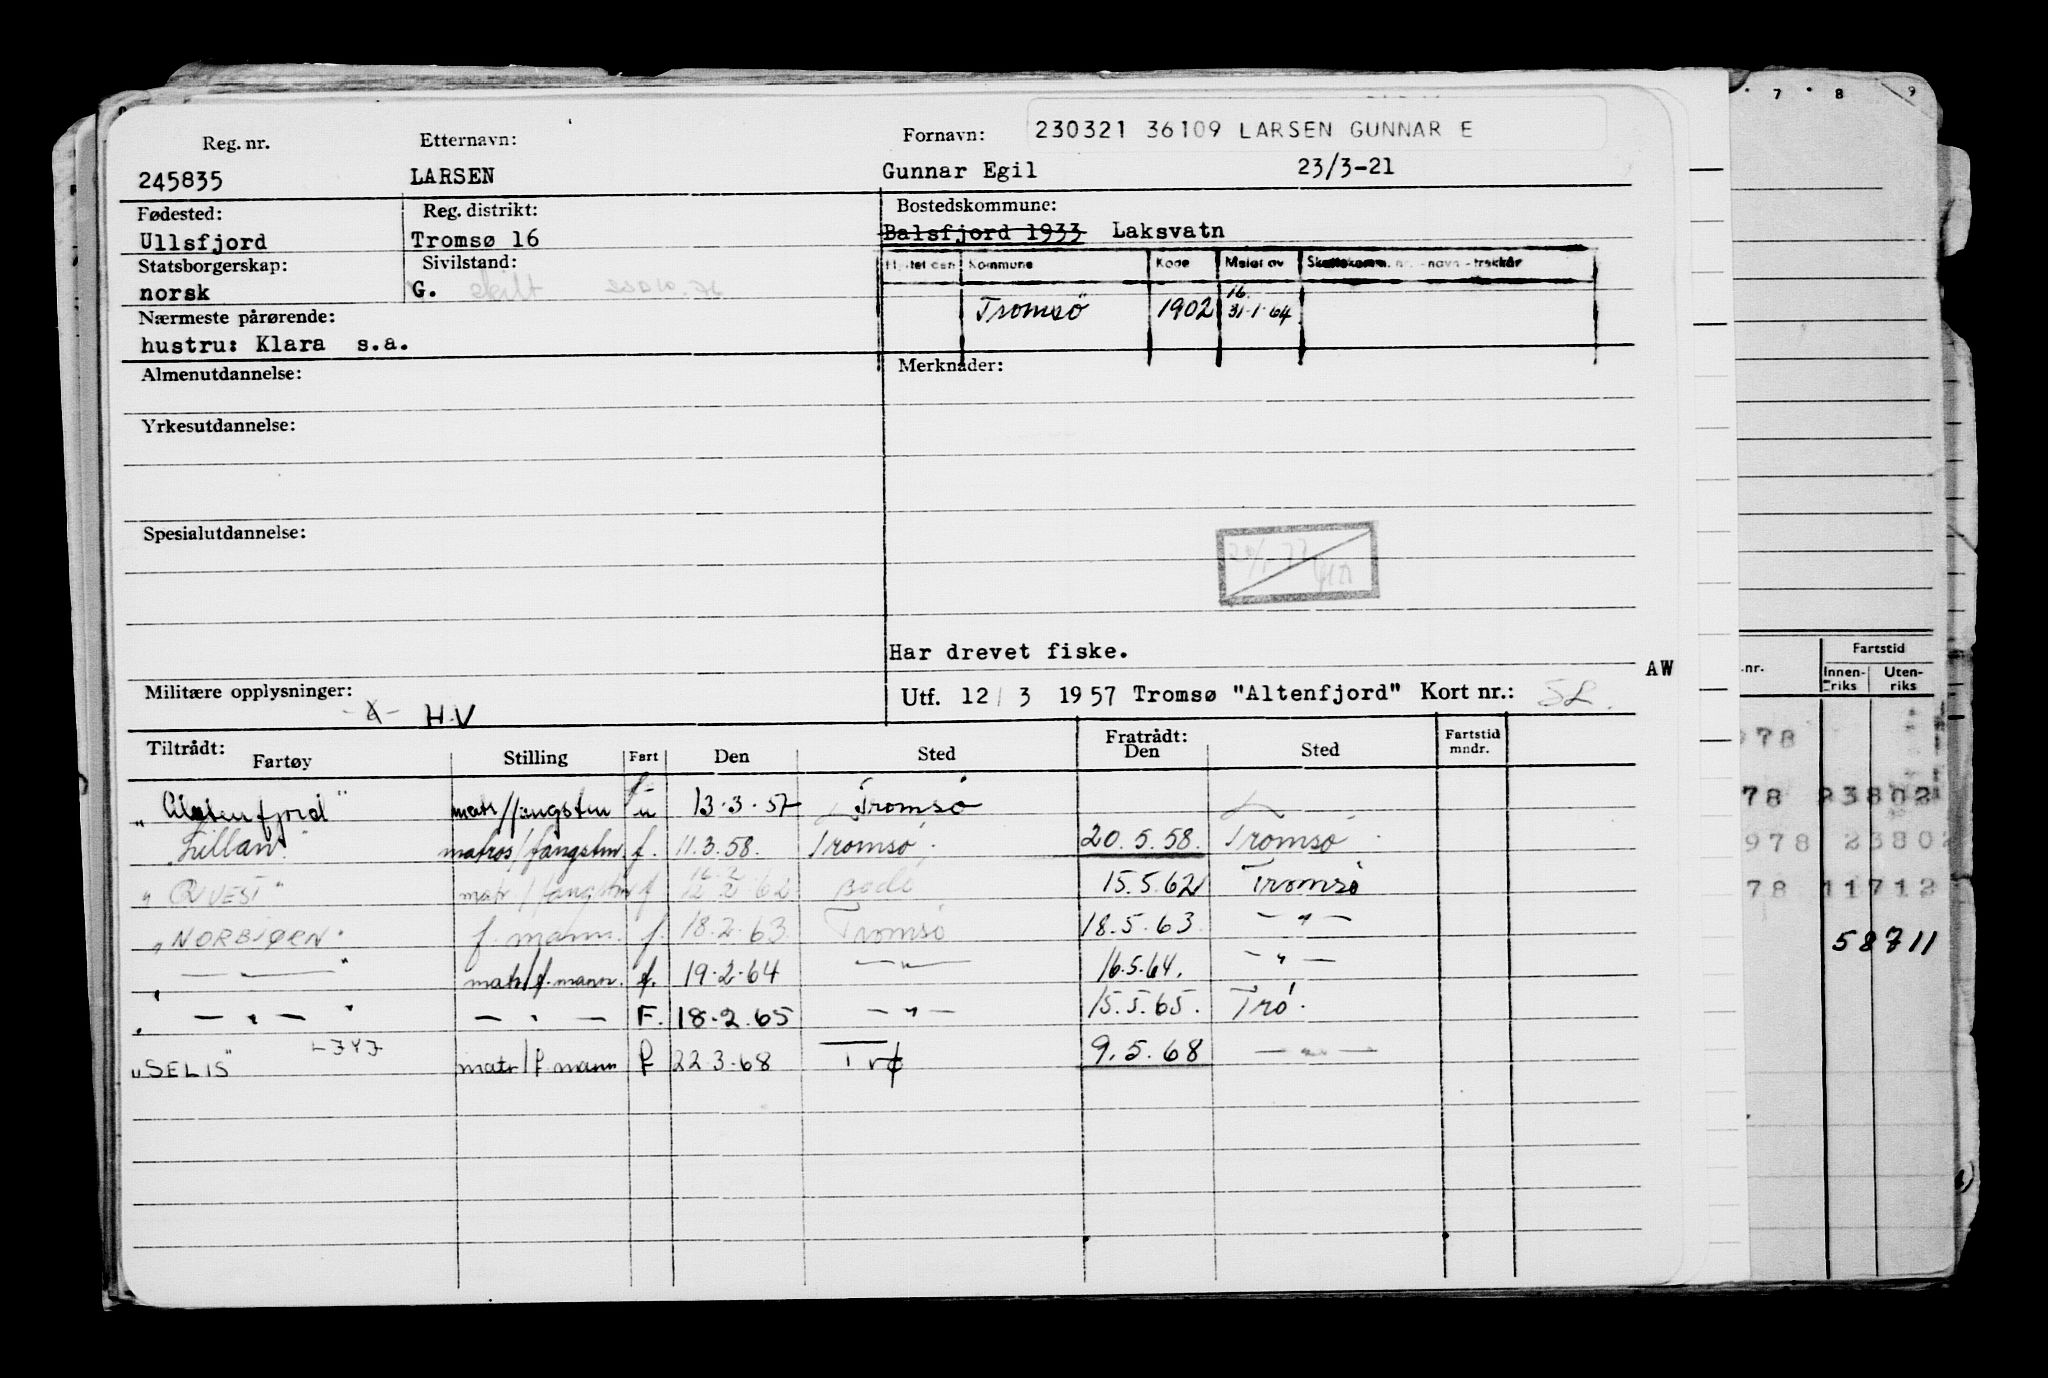 7 8 9
Reg. nr. Etternavn: Fornavn: 230321 36109 LARSEN GUNNAR E
245835 LARSEN Gunnar Egil 23/3-21
Fødested: Reg. distrikt: Bostedskommune:
Ullsfjord Tromsø 16 Balsfjord 1933 Laksvatn
Statsborgerskap: Sivilstand: Kommune Kode Meldt av
norsk G. skilt
Tromsø 1902 16. 31-1-64
Nærmeste pårørende:
hustru: Klara s.a.
Almenutdannelse: Merknader:
Yrkesutdannelse:
Spesialutdannelse:
Har drevet fiske.
AW
Militære opplysninger: H.V
Utf. 12/ 3 1957 Tromsø "Altenfjord" Kort nr.:
Tiltrådt: Fratrådt: Fartstid mndr.
Fartøy Stilling Fart Den Sted Den Sted
"Altenfjord" matr/fangstm u 13-3-57 Tromsø
matros/fangstm. f. 11.3.58. Tromsø. 20.5.58. Tromsø.
"QUEST" matr/fangstm f Bodø 15.5.62 Tromsø
"NORBJØRN" f. mann. f. 18.2.63 Tromsø 18.5.63 — " —
— " — matr/f.mann. f. 19-2-64 — " — 16.5.64. — " —
" — " — " — " — F. 18-2-65 — " — 15.5.65. Trø.
"SELIS" matr/f.mann f 22.3-68 Trø 9.5.68 — " —
.nr. Fartstid
Innenriks Utenriks
978
78 23802
978 23802
78 11712
58711